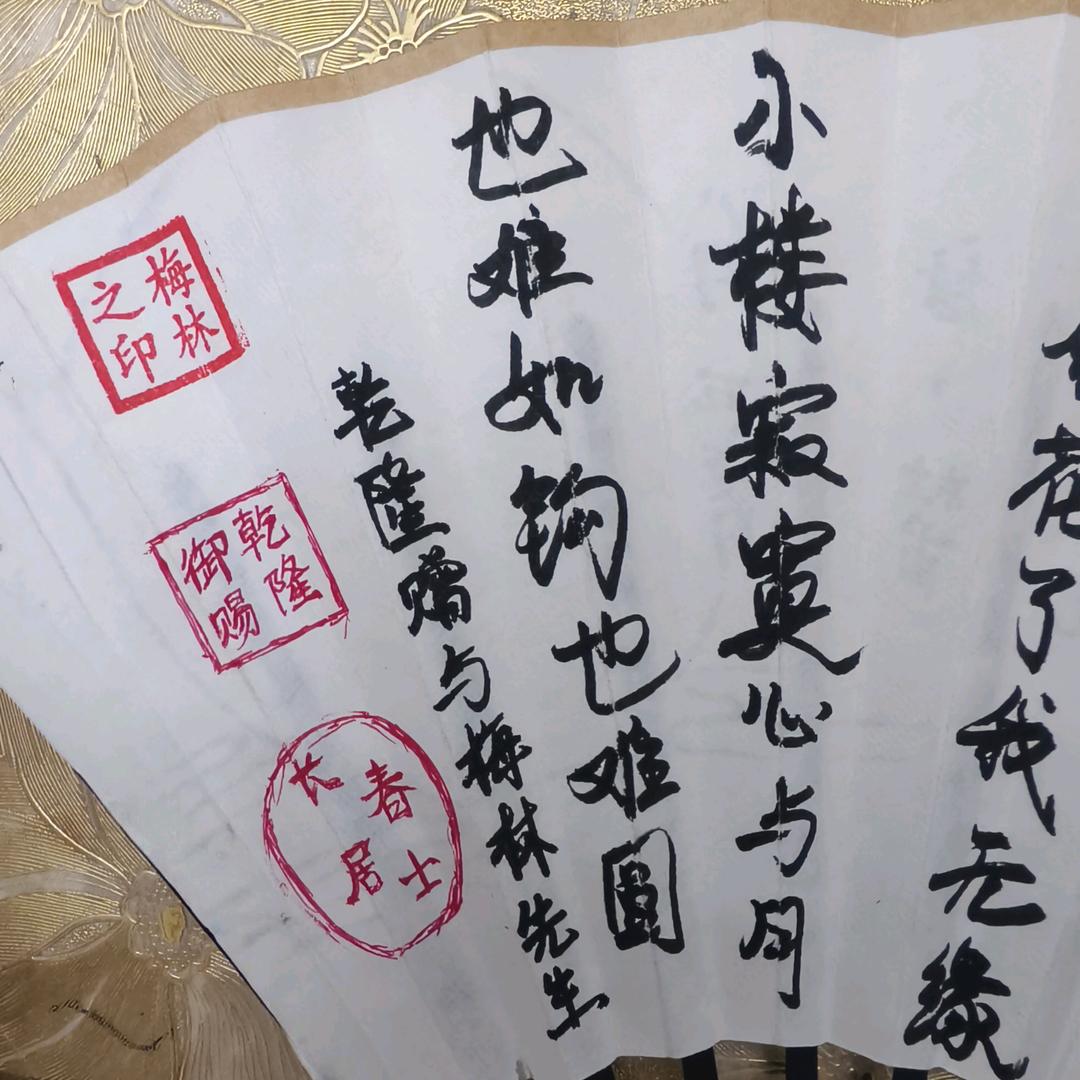 花了我无缘
小楼寂寞心与月
也难如钩也难圓
乾隆赠与梅林先生
梅林之印
乾隆御赐
长春居士